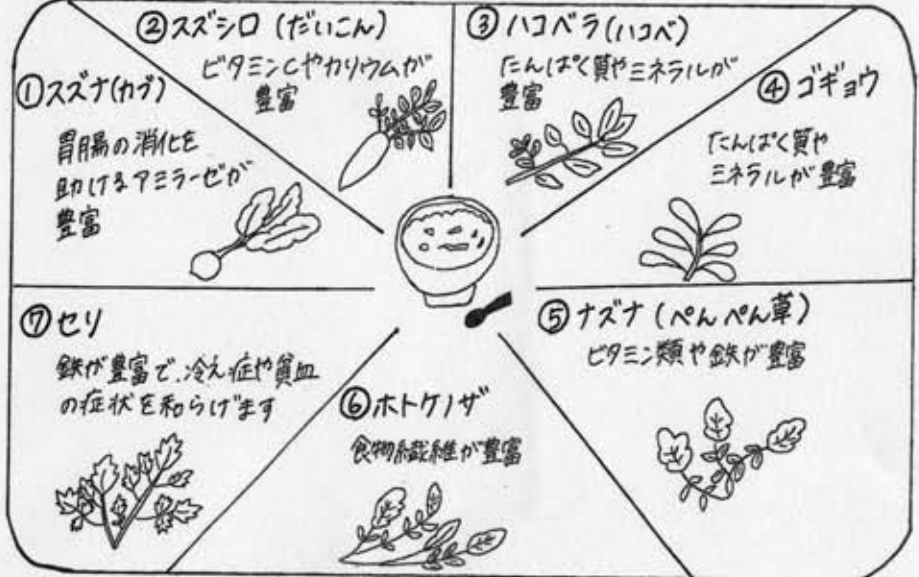 ①スズナ(カブ)
胃腸の消化を
助けるアミラーゼが
豊富
②スズシロ(だいこん)
ビタミンCやカリウムが
豊富
③ハコベラ(ハコベ)
たんぱく質やミネラルが
豊富
④ゴギョウ
たんぱく質や
ミネラルが豊富
⑤ナズナ(ぺんぺん草)
ビタミン類や鉄が豊富
⑥ホトケノザ
食物繊維が豊富
⑦セリ
鉄が豊富で、冷え症や貧血
の症状を和らげます